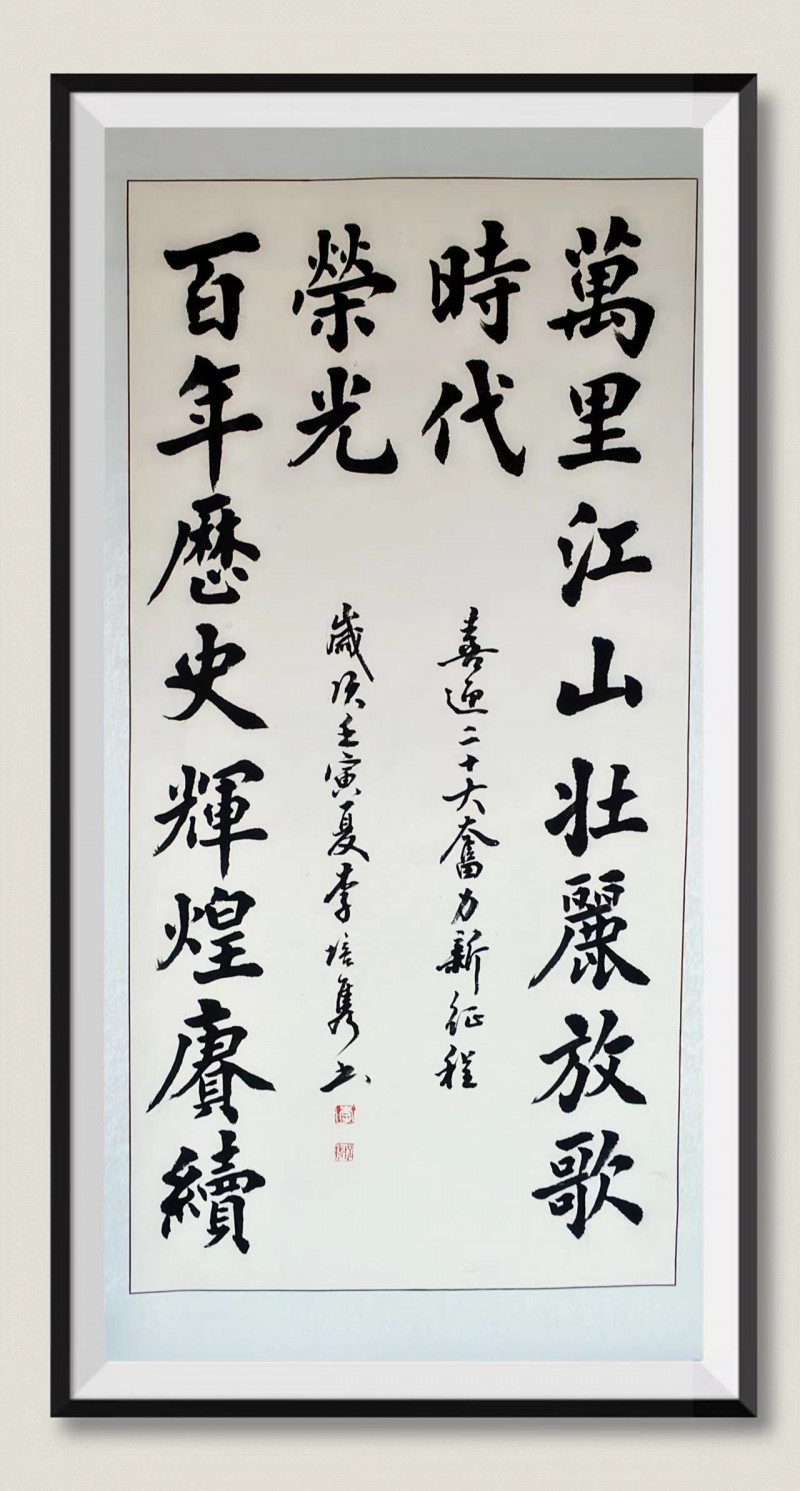 萬里江山壯麗放歌
時代
喜迎二十大奮力新征程
百年歷史輝煌賡續
榮光
歲次壬寅夏李培隽书